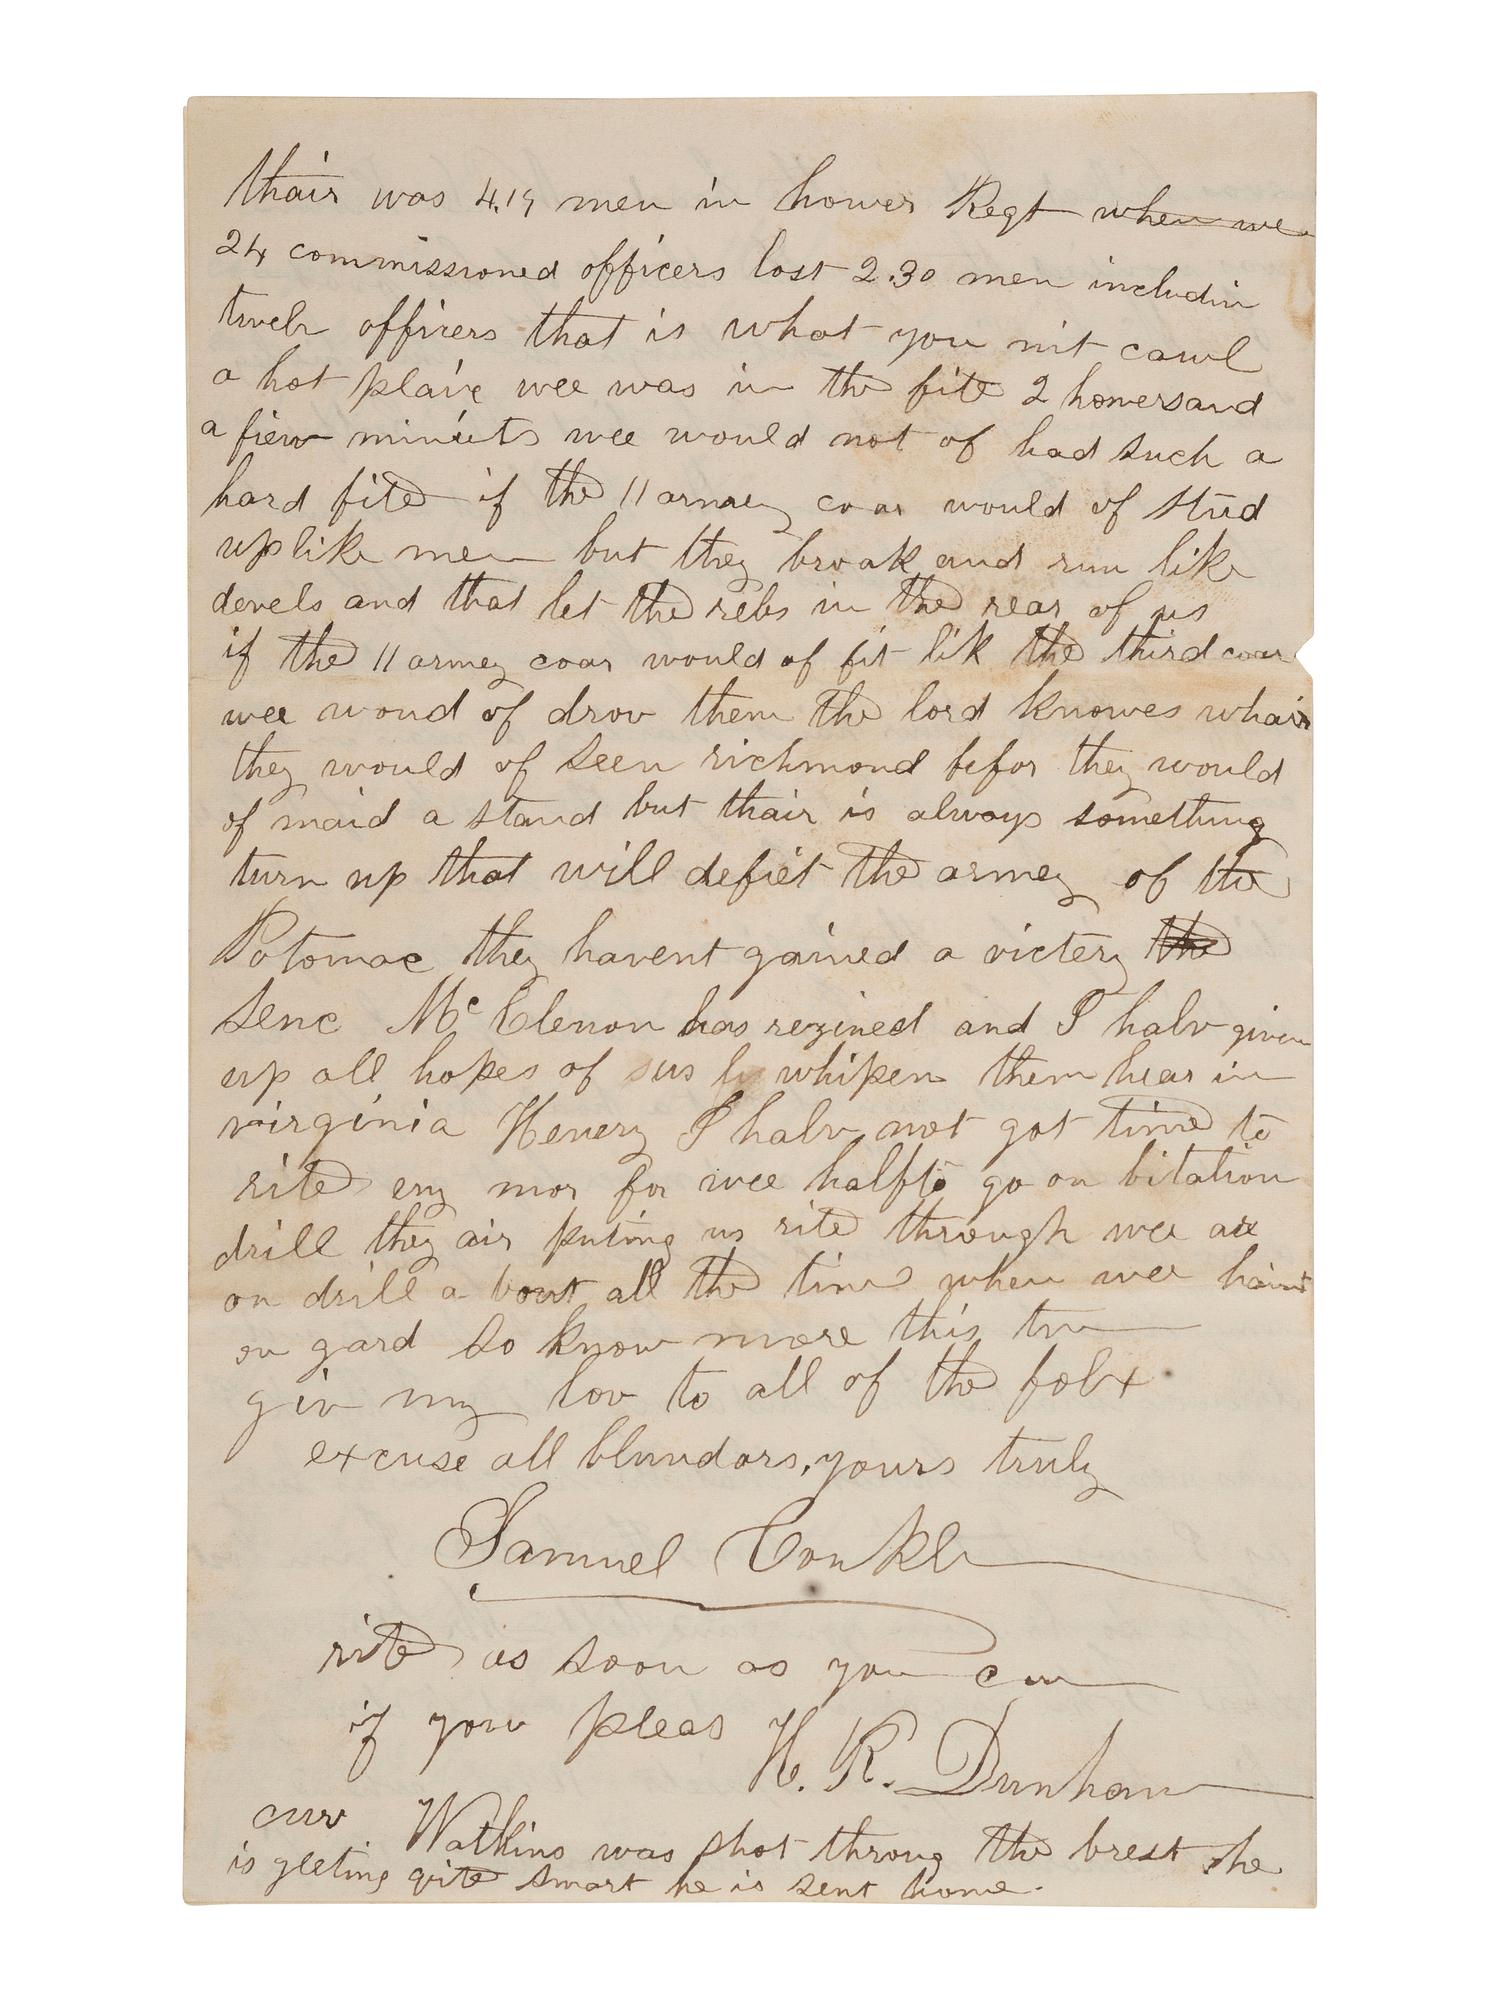 thair was 4.19 men in hower Regt when we
24 commissioned officers lost 2.30 men includin
twelv officers that is what you mit cawl
a hot plaic wee was in the fite 2 howersand
a fiew minuits wee would not of had such a
hard fite if the 11 armey coar would of stud
up like men but they broak and run like
devels and that let the rebs in the rear of us
if the 11 armey coar would of fit lik the third coar
wee woud of drov them the lord knowes whair
they would of seen richmond befor they would
of maid a stand but thair is always something
turn up that will defiet the armey of the
Potomac they havent gained a victery the
senc Mc Clenon has rezined and I halv given
up all hopes of us whipen them hear in
virginia Henery I halv not got time to
rite eny mor for wee halfto go on bitation
drill they air puting us rite through wee air
on drill a bout all the time when wee haint
on gard so know more this time
giv my lov to all of the folx
excuse all blundors, yours truly
Samuel Conkle
rite as soon as you can
if you pleas H. R. Dunham
Watkins was shot throug the brest he
is geeting qite smart he is sent home.